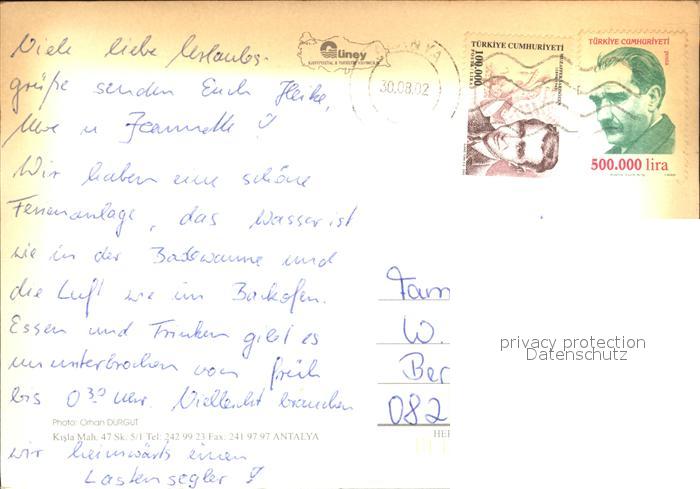 Viele liebe Urlaubs-
grüße senden Euch Heike,
Uwe u Jeannette!
Wir haben eine schöne
Ferienanlage, das Wasser ist
wie in der Badewanne und
die Luft wie im Backofen.
Essen und Trinken gibt es
ununterbrochen von früh
bis 0³⁰ Uhr. Vielleicht brauchen
wir heimwärts einen
Lastensegler!
Photo: Orhan DURGUT
Kışla Mah. 47 Sk. 5/1 Tel: 242 99 23 Fax: 241 97 97 ANTALYA
Güney
30.08.02
TÜRKİYE CUMHURİYETİ
100.000
TÜRKİYE CUMHURİYETİ
posta
500.000 lira
Fam
W.
Ber
082
privacy protection
Datenschutz